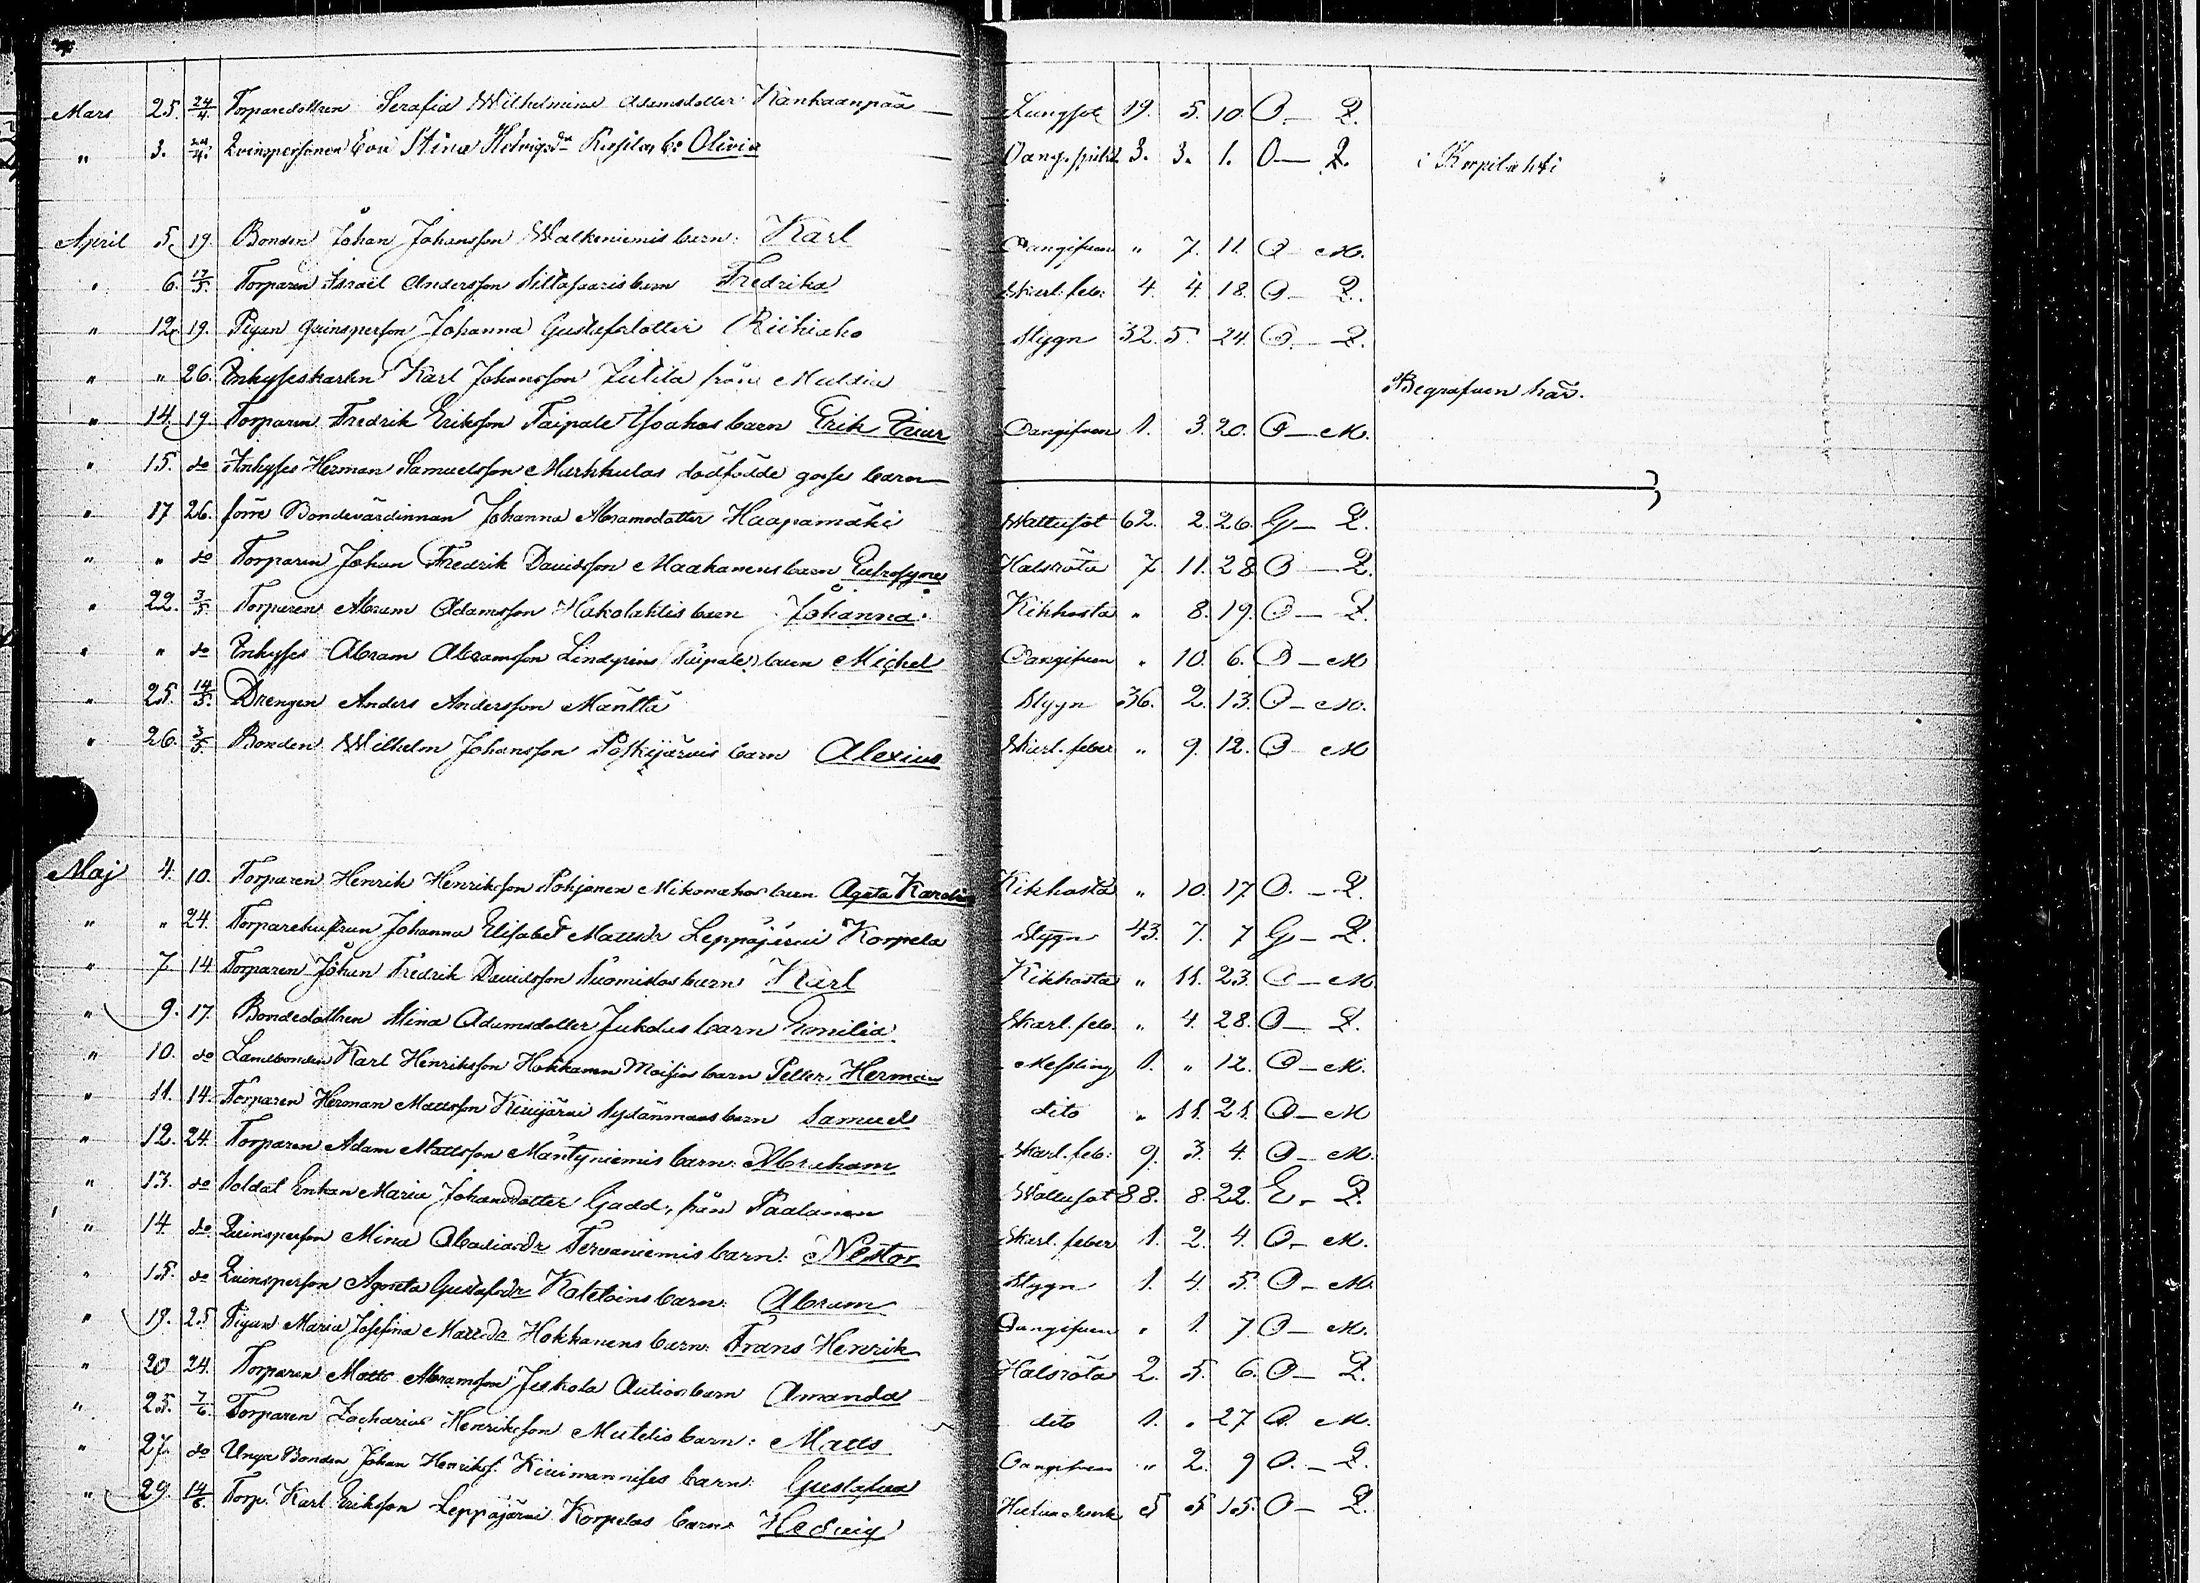 Mars 25. 24/4. Torparedottren Serafia Wilhelmina Adamsdotter Kankaanpää Lungsot 19. 5. 10. O. — Q.
" 3. 24/4. Qvinspersonen Eva Stina Hedvigsdr Olivia Oangifvet 3. 3. 1. O — Q. i Korpilahti
April 5. 19. Bonden Johan Johansson Walkeniemis barn: Karl Oangifven " 7. 11. O — M.
" 6. 17/5. Torparen Israël Andersson Siltasaaris barn Fredrika Skarl. feb: 4. 4. 18. O — Q.
" 12. 19. Pigan qvinsperson Johanna Gustafsdotter Riihiaho Stygn 32. 5. 24. O. — Q.
" " 26. Inhyseskarlen Karl Johansson från Multia Begrafven här.
" 14. 19. Torparen Fredrik Eriksson Taipale Ysoahos barn Erik Einar Oangifven 1. 3. 20. O — M.
" 15. do Inhyses Herman Samuelsson Murkkulas dödfödde gosse barn
" 17 26. förre Bondevärdinnan Johanna Abramsdotter Haapamäki Wattusot 62. 2. 26. G — Q.
" " do Torparen Johan Fredrik Davidsson Maahanens barn Eufrosyne Halsröta 7 11. 28. O — Q.
" 22. 3/5. Torparen Abram Adamsson Hakolahtis barn Johanna Kikhosta " 8. 19. O — Q.
" " do Inhyses Abram Abramsson Lindgrens (Taipale) barn Michel Oangifven " 10. 6. O — M
" 25. 14/5. Drengen Anders Andersson Mänttä Stygn 36. 2. 13. O — M.
" 26. 3/5. Bonden Wilhelm Johansson Poskijärvis barn Alexius Skarl. feber " 9. 12. O — M
Maj 4. 10. Torparen Henrik Henriksson Pohjonen Mikonahos barn Agata Karolina Kikhosta " 10. 17. O. — Q.
" " 24. Torparehustrun Johanna Elisabet Mattsdr Leppäjärvi Korpela Stygn 43. 7. 7 G — Q.
" 7. 14 Torparen Johan Fredrik Davidsson Tuomistos barn Karl Kikhosta " 11. 23. O — M
" 9. 17. Bondedottren Mina Adamsdotter Juholas barn Emilia Skarl. feb. " 4. 28. O — Q.
" 10. do Landbonden Karl Henriksson Hokkanen Moisio barn Petter Herman Messling 1. " 12. O — M.
" 11. 14. Torparen Herman Mattsson Kivijärvi Sydänmaas barn Samuel dito " 11. 21. O — M
" 12. 24. Torparen Adam Mattsson Mäntyniemis barn: Abraham Skarl. feb: 9. 3. 4. O — M.
" 13. do Soldat Enkan Maria Johansdotter Gadd, från Paalanen Wattusot 88. 8. 22. E. — Q.
" 14 do Qvinsperson Mina Abadiasdr Tervaniemis barn: Nestor Skarl. feber 1. 2. 4. O — M.
" 15. do Qvinsperson Agneta Gustafsdr barn: Abram Stygn 1. 4. 5. O — M.
" 19. 25 Pigan Maria Josefina Mattsdr Hokkanens barn: Frans Henrik Oangifven " 1. 7. O — M.
" 20 24. Torparen Matts Abramsson Jeskola Autios barn Amanda Halsröta 2. 5. 6. O — Q.
" 25. 7/6. Torparen Zacharias Henriksson barn: Matts dito 1. " 27 O. M.
" 27. do Unga Bonden Johan Henriks. Kiiimannises barn: Gustafva Oangifven " 2. 9 O. — Q.
" 29. 14/6. Torp. Karl Eriksson Leppäjärvi Korpelas barn Hedvig 5 5 15. O — Q.